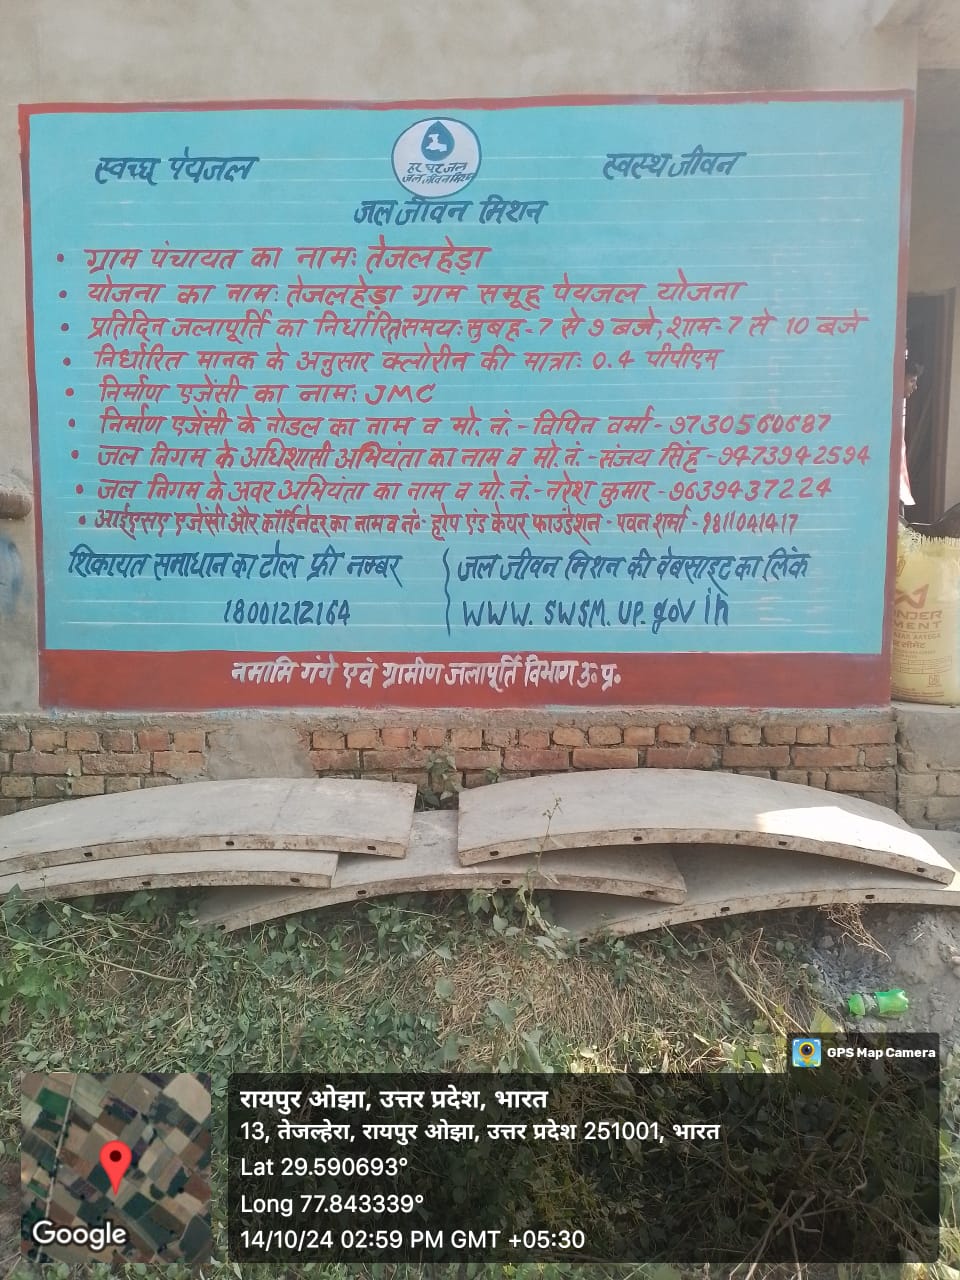 स्वच्छ पेयजल
हर घर जल
जल जीवन मिशन
स्वस्थ जीवन
जल जीवन मिशन
• ग्राम पंचायत का नाम: तेजलहेड़ा
• योजना का नाम: तेजलहेड़ा ग्राम समूह पेयजल योजना
• प्रतिदिन जलापूर्ति का निर्धारित समय: सुबह - 7 से 9 बजे, शाम - 7 से 10 बजे
• निर्धारित मानक के अनुसार क्लोरीन की मात्रा: 0.4 पीपीएम
• निर्माण एजेंसी का नाम: JMC
• निर्माण एजेंसी के नोडल का नाम व मो. नं. - विपिन वर्मा - 9730560687
• जल निगम के अधिशासी अभियंता का नाम व मो. नं. - संजय सिंह - 9473942594
• जल निगम के अवर अभियंता का नाम व मो. नं. - नरेश कुमार - 9639437224
• आईएसए एजेंसी और कॉर्डिनेटर का नाम व नं॰ - होप एंड केयर फाउंडेशन - पवन शर्मा - 9811041417
शिकायत समाधान का टोल फ्री नम्बर
18001212164
जल जीवन मिशन की वेबसाइट का लिंक
www. swsm. up. gov in
नमामि गंगे एवं ग्रामीण जलापूर्ति विभाग उ॰ प्र॰
GPS Map Camera
रायपुर ओझा, उत्तर प्रदेश, भारत
13, तेजल्हेरा, रायपुर ओझा, उत्तर प्रदेश 251001, भारत
Lat 29.590693°
Long 77.843339°
14/10/24 02:59 PM GMT +05:30
Google